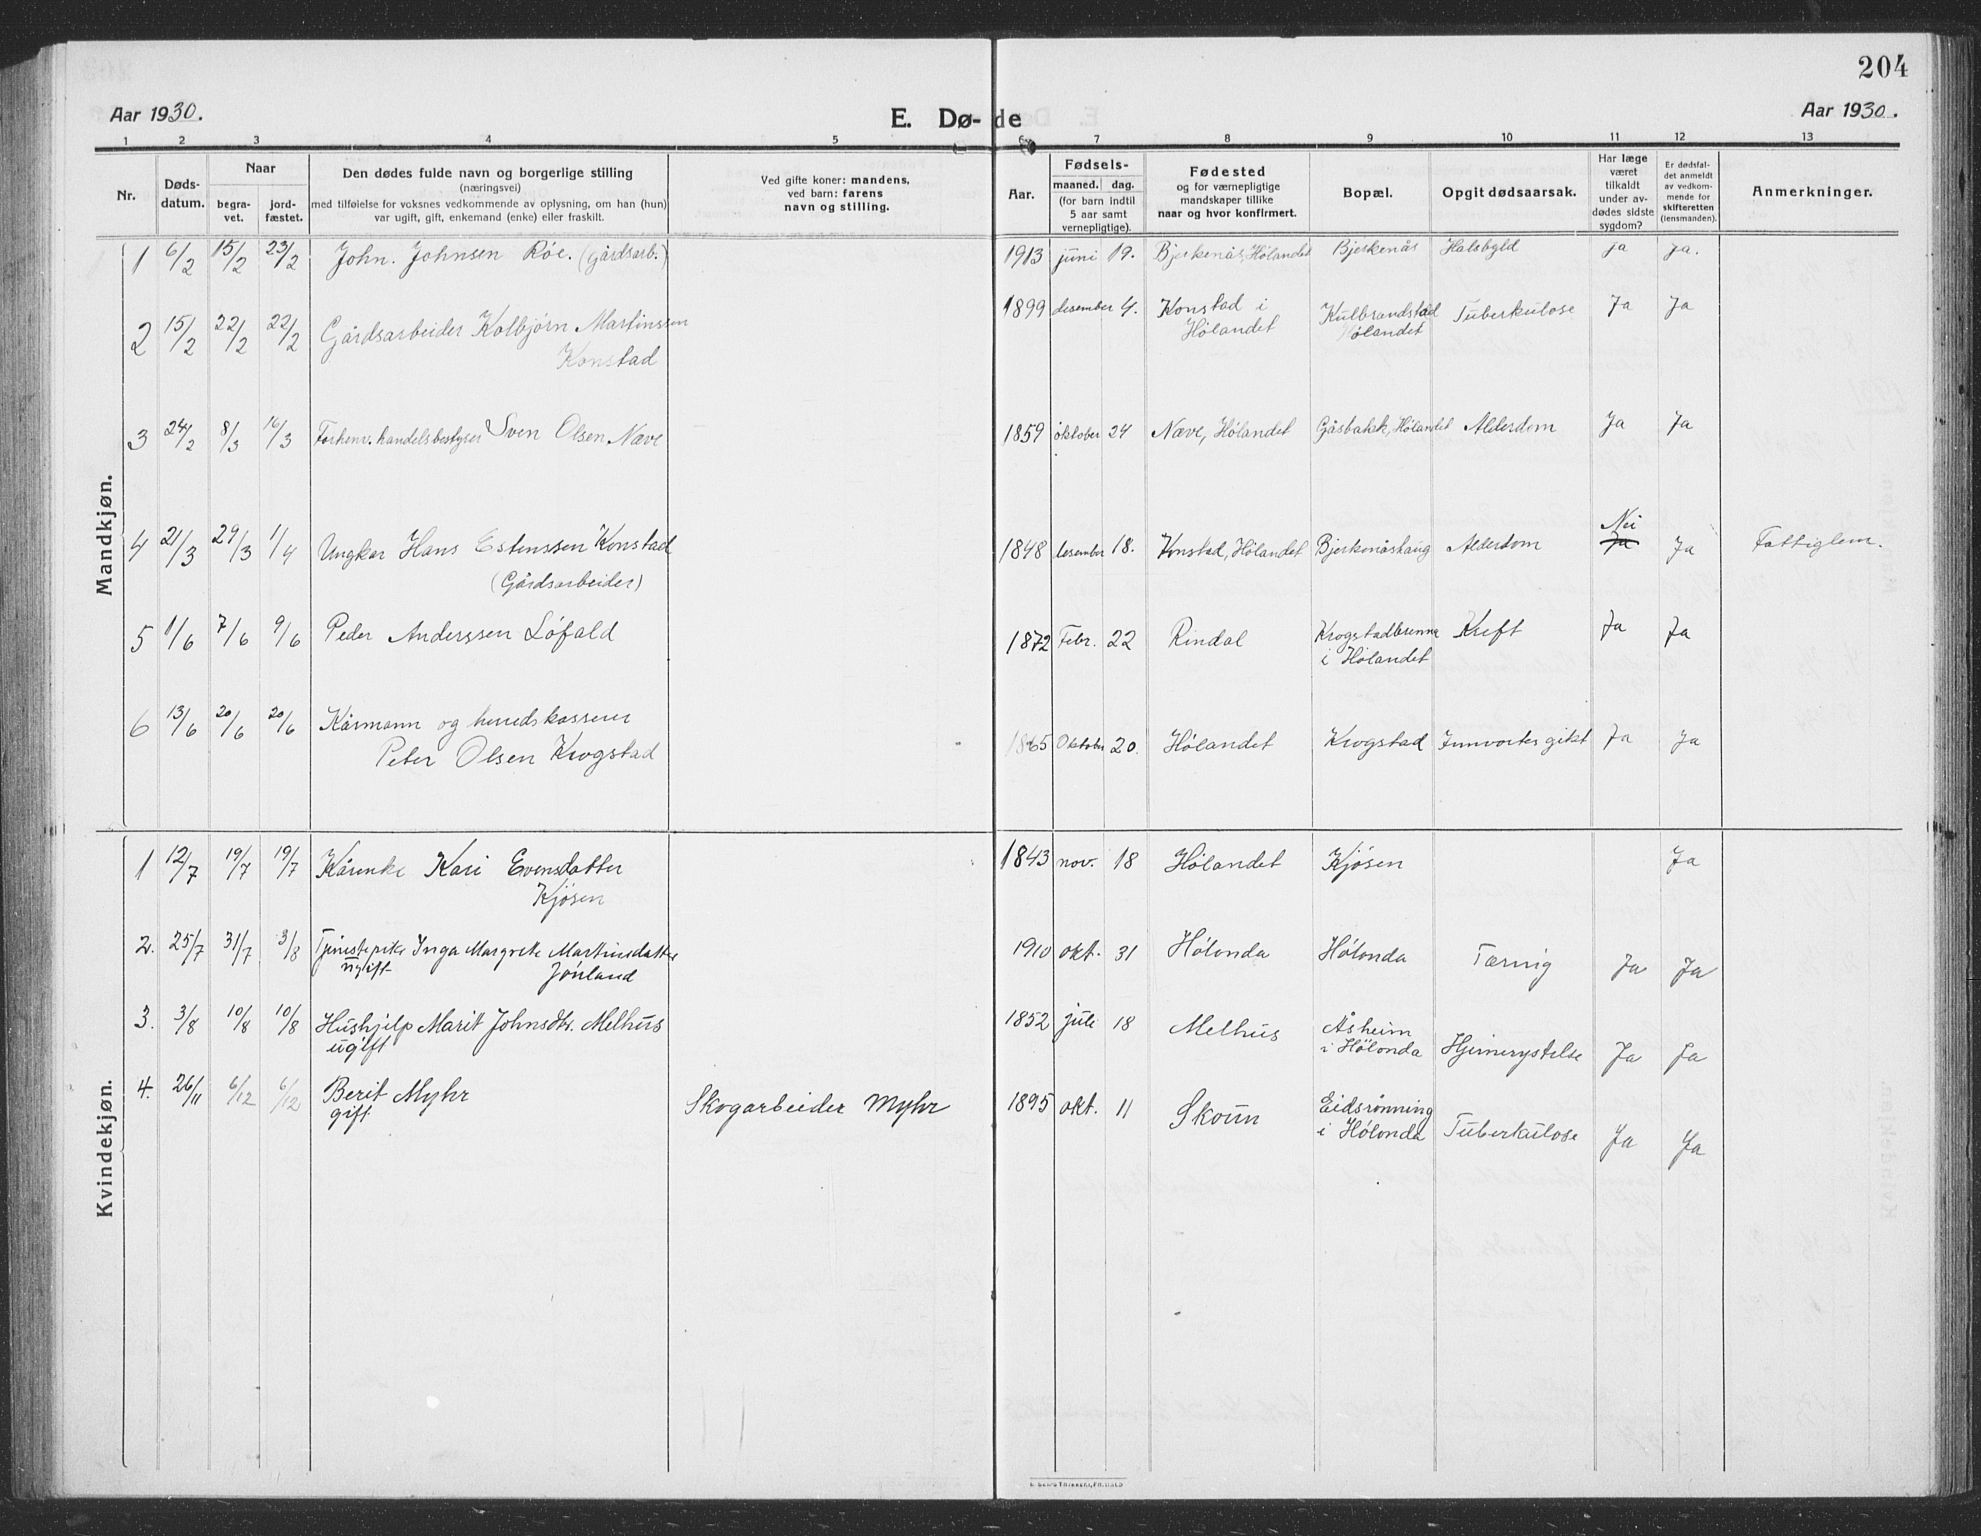 204
Aar 1930.
E. Dø-de
Aar 1930.
1 2 3 4 5 6 7 8 9 10 11 12 13
Nr.
Døds-
datum.
Naar
begra-
vet.
jord-
fæstet.
Den dødes fulde navn og borgerlige stilling
(næringsvei)
med tilføielse for voksnes vedkommende av oplysning, om han (hun)
var ugift, gift, enkemand (enke) eller fraskilt.
Ved gifte koner: mandens,
ved barn: farens
navn og stilling.
Aar.
Fødsels-
maaned. dag.
(for barn indtil
5 aar samt
vernepligtige).
Fødested
og for værnepligtige
mandskaper tillike
naar og hvor konfirmert.
Bopæl.
Opgit dødsaarsak.
Har læge
været
tilkaldt
under av-
dødes sidste
sygdom?
Er dødsfal-
det anmeldt
av vedkom-
mende for
skifteretten
(lensmanden).
Anmerkninger.
Mandkjøn.
1 6/2 15/2 23/2 John. Johnsen Röe. (gårdsarb.) 1913 juni 19. Bjerkenås, Hölandet Bjerkenås Halsbyld ja ja.
2 15/2 22/2 22/2 Gårdsarbeider Kolbjörn Martinssen
Konstad
1899 desember 4. Konstad i
Hölandet
Kulbrandstad
Hölandet
Tuberkulose Ja Ja
3 24/2 8/3 16/3 Forhenv. handelsbestyrer Sven Olsen Næve 1859 oktober 24 Næve, Hölandet Gåsbakk, Hölandet Alderdom Ja Ja
4 21/3 29/3 1/4 Ungkar Hans Estenssen Konstad
(Gårdsarbeider)
1848 desember 18. Konstad, Hölandet Bjerkenåshaug Alderdom Nei
Ja Ja Fattiglem.
5 1/6 7/6 9/6 Peder Anderssen Löfald 1872 Febr. 22 Rindal Krogstadbrenna
i Hölandet
Kreft Ja Ja
6 13/6 20/6 20/6 Kårmann og herredskasserer
Peter Olsen Krogstad
1865 Oktober 20. Hölandet Krogstad Innvortes gikt Ja Ja
Kvindekjøn.
1 12/7 19/7 19/7 Kårenke Kari Evensdatter
Kjösen
1843 nov. 18 Hölandet Kjösen Ja
2. 25/7 31/7 3/8 Tjenestepike Inga Margrete Martinsdatter
ugift Jönland
1910 okt. 31 Hölonda Hölonda Tæring Ja Ja
3. 3/8 10/8 10/8 Hushjelp Marit Johnsdtr. Melhus
ugift
1852 juli 18 Melhus Åsheim
i Hölonda
Hjernerystelse Ja Ja
4. 26/11 6/12 6/12 Berit Myhr
gift
Skogarbeider Myhr 1895 okt. 11 Skoun Eidsrönning
i Hölonda
Tuberkulose Ja Ja